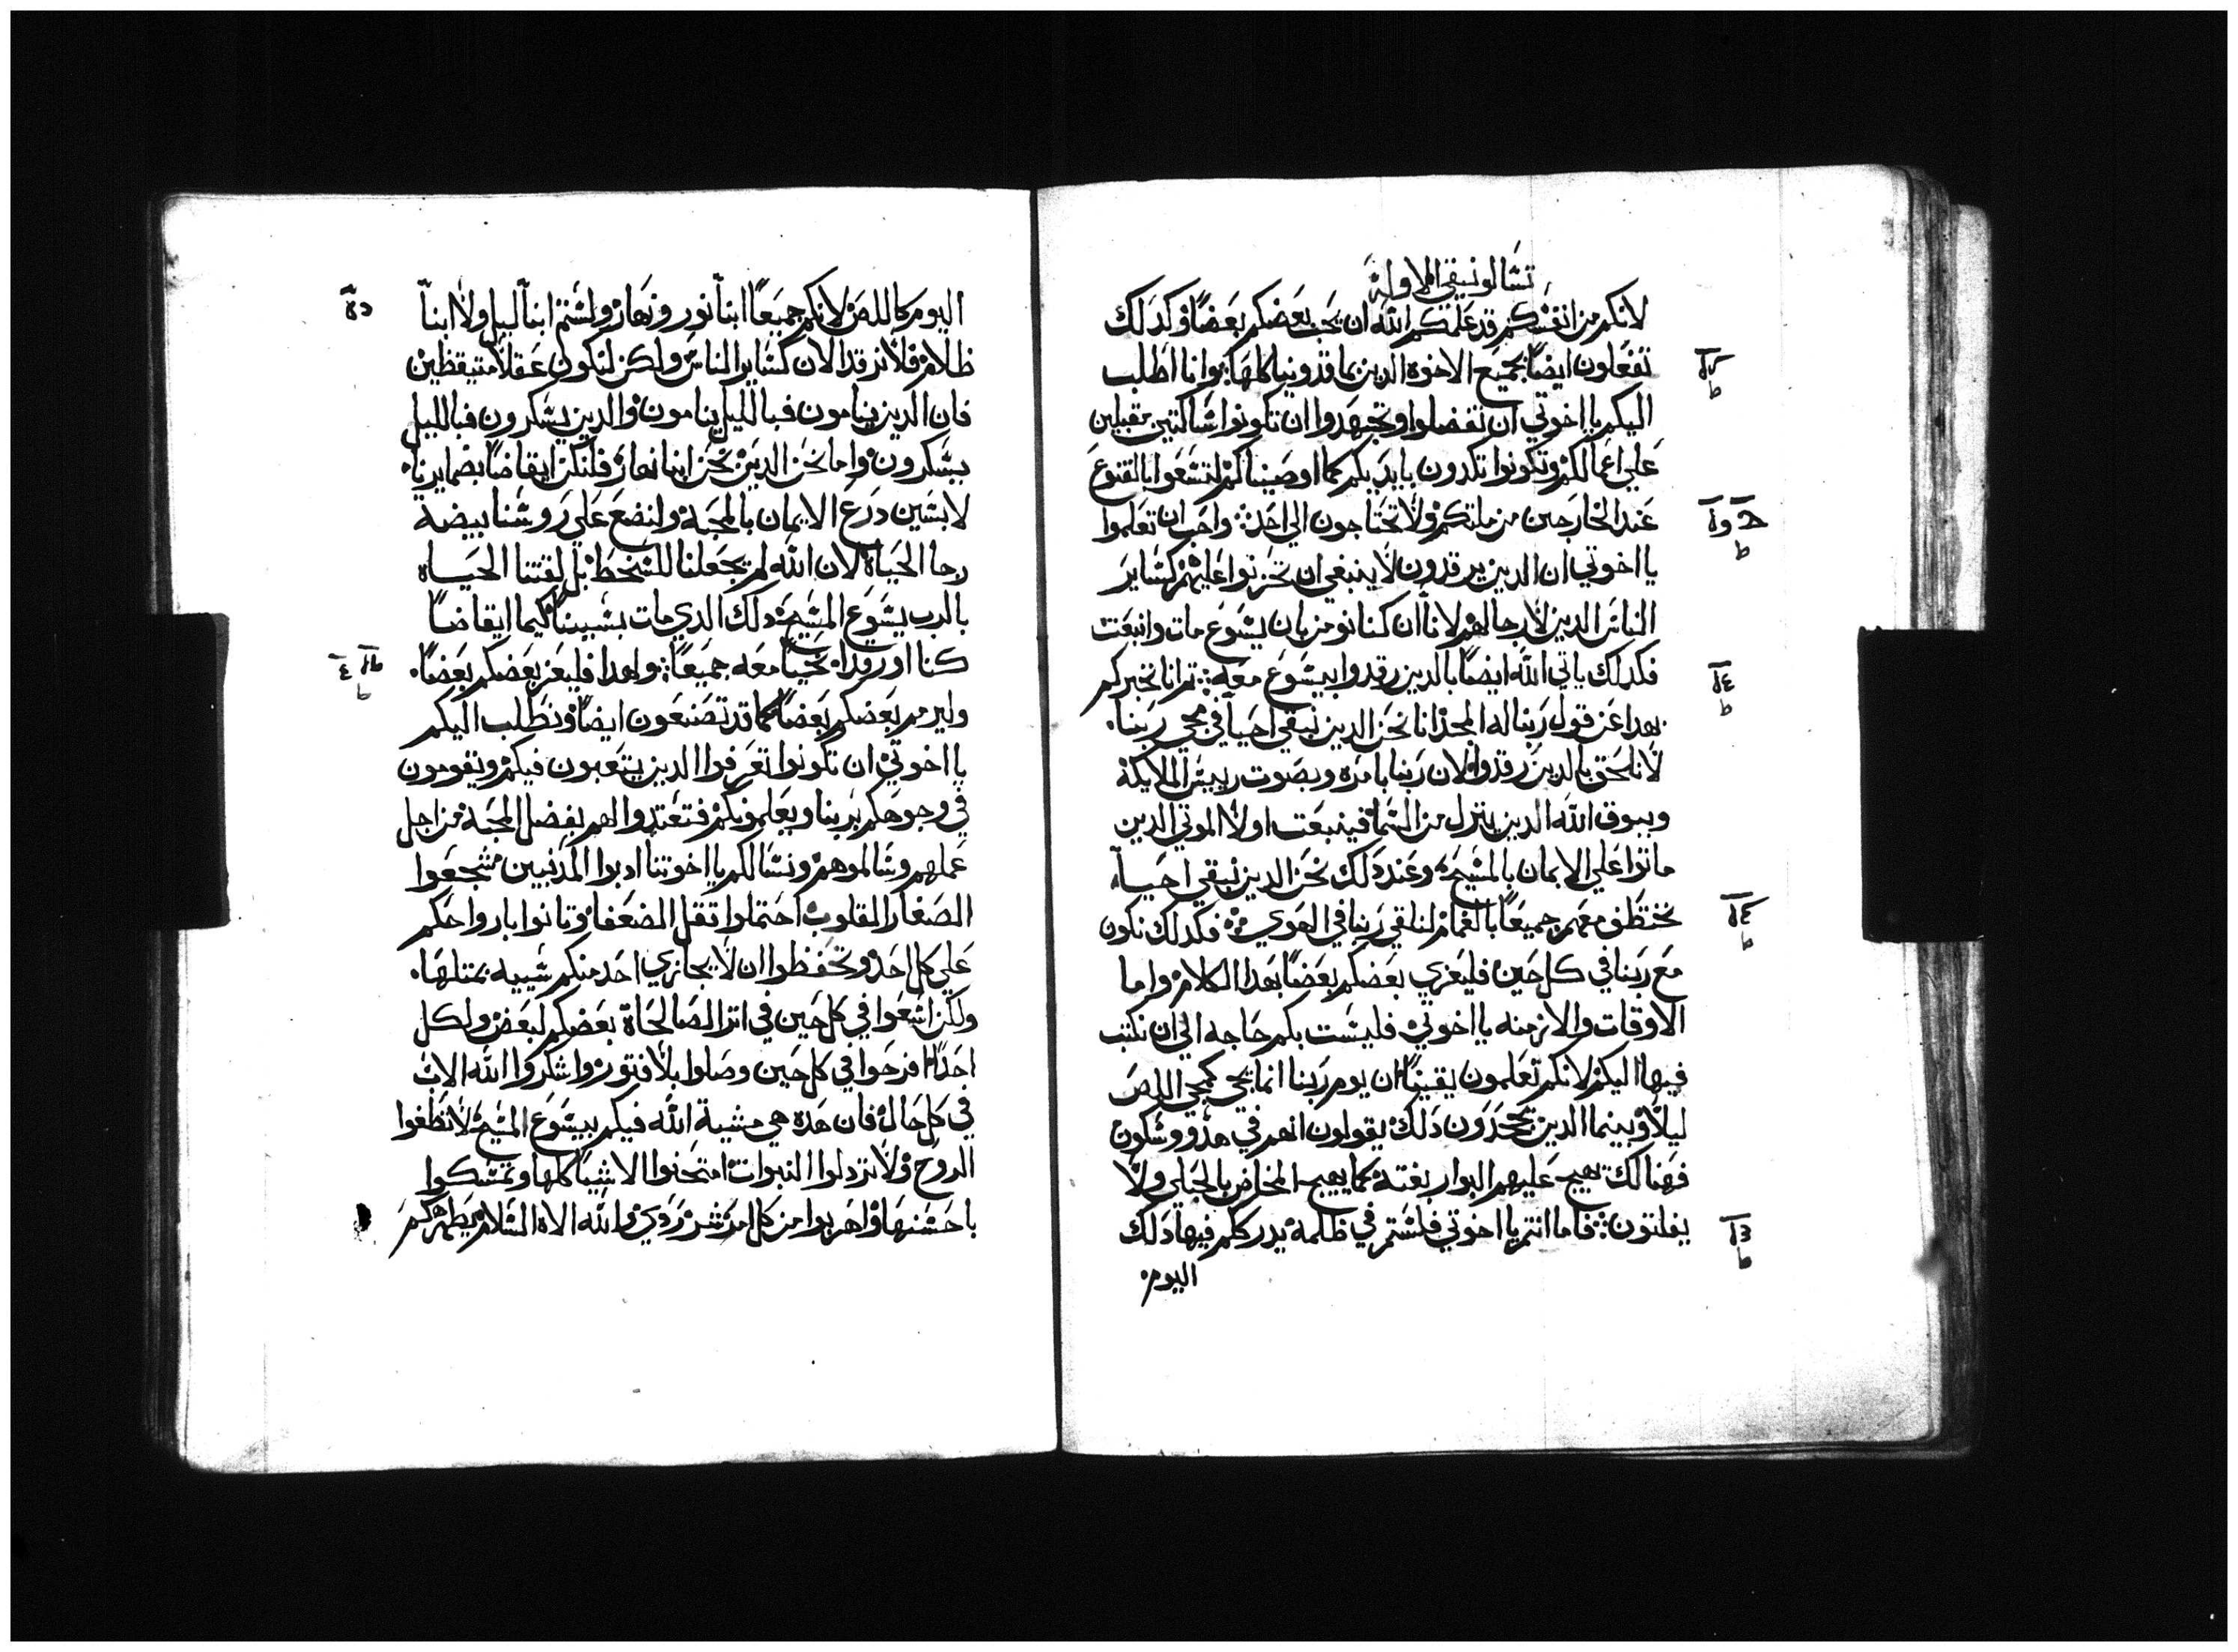 تسالونيقي الاولة
لانكم من انفسكم قد علمكم الله ان يحب بعضكم بعضاً وكدلك
تفعلون ايضاً بجميع الاخوة الدين بماقدونيا كلها وانا اطلب
اليكم يا اخوتي ان تفضلوا وتجتهدوا ان تكونوا شاكتين مقبلين
علي اعمالكم وتكونوا تكدون بايديكم كما اوصيناكم لتسعوا بالقنوع
عند الخارجين من ملتكم ولا تحتاجون الي احد واحب ان تعلموا
يا اخوتي ان الدين يرقدون لا ينبغي ان تحزنوا عليهم كساير
الناس الدين لا رجا لهم لانا ان كنا نومن بان يسوع مات وانبعت
فكدلك ياتي الله ايضاً بالدين رقدوا بيسوع معه تم انا نخبركم
بهدا عن قول ربنا له المجد انا نحن الدين نبقي احيا في مجي ربنا
لا نلحق بالدين رقدوا لان ربنا بامره وبصوت رييس الملايكة
وببوق الله الدين ينزل من السما فينبعت اولا الموتي الدين
ماتوا علي الايمان بالمسيح وعند دلك نحن الدين نبقي احياء
نختطف معهم جميعاً بالغمام لنلقي ربنا في الهوي فكدلك نكون
مع ربنا في كل حين فليعزي بعضكم بعضاً بهدا الكلام واما
الاوقات والازمنه يا اخوتي فليست بكم حاجه الي ان نكتب
فيها اليكم لانكم تعلمون يقيناً ان يوم ربنا انما يجي كمجي اللص
ليلاً وبينما الدين يجحدون دلك يقولون انهم في هدو وسكون
فهنالك يهيج عليهم البوار بغتة كما يهيج المخاض بالحبلي ولا
يفلتون فاما انتم يا اخوتي فلستم في ظلمة يدرككم فيها دلك
اليوم
اليوم كاللص لانكم جميعاً ابنا نور ونهار ولستم ابنا ليل ولا ابنا
ظلام فلا نرقد الان كساير الناس ولكن لنكون عقلا متيقظين
فان الدين ينامون فبالليل ينامون والدين يسكرون فبالليل
يسكرون واما نحن الدين نحن ابنا نهار فلنكن ايقاضاً بضمايرنا
لابسين درع الايمان بالمحبة ولنضع علي روسنا بيضة
رجا الحياة لان الله لم يجعلنا للسخط بل لقتنا الحياه
بالرب يسوع المسيح دلك الدي مات بسببنا كيما ايقاضاً
كنا او رقدا نحيا معه جميعاً ولهدا فليعز بعضكم بعضاً
وليرمم بعضكم بعضاً كما قد تصنعون ايضاً ونطلب اليكم
يا اخوتي ان تكونوا تعرفوا الدين يتعبون فيكم ويقومون
في وجوهكم بربنا ويعلمونكم فتعتدوا لهم بفضل المحبة من اجل
عملهم وسالموهم ونسالكم يا اخوتنا ادبوا المدنبين شجعوا
الصغار القلوب احتملوا تقل الضعفا وتانوا بارواحكم
علي كل احد وتحفظوا ان لا يجازي احد منكم سييه بمتلها
ولكن اسعوا في كل حين في اتر الصالحاة بعضكم لبعض ولكل
احداً افرحوا في كل حين وصلوا بلا فتور واشكروا الله الاب
في كل حال فان هده هي مشية الله فيكم بيسوع المسيح لا تطفوا
الروح ولا تردلوا النبوات امتحنوا الاشيا كلها وتمسكوا
باحسنها واهربوا من كل امر شر ردي والله الاه السلام يطهركم